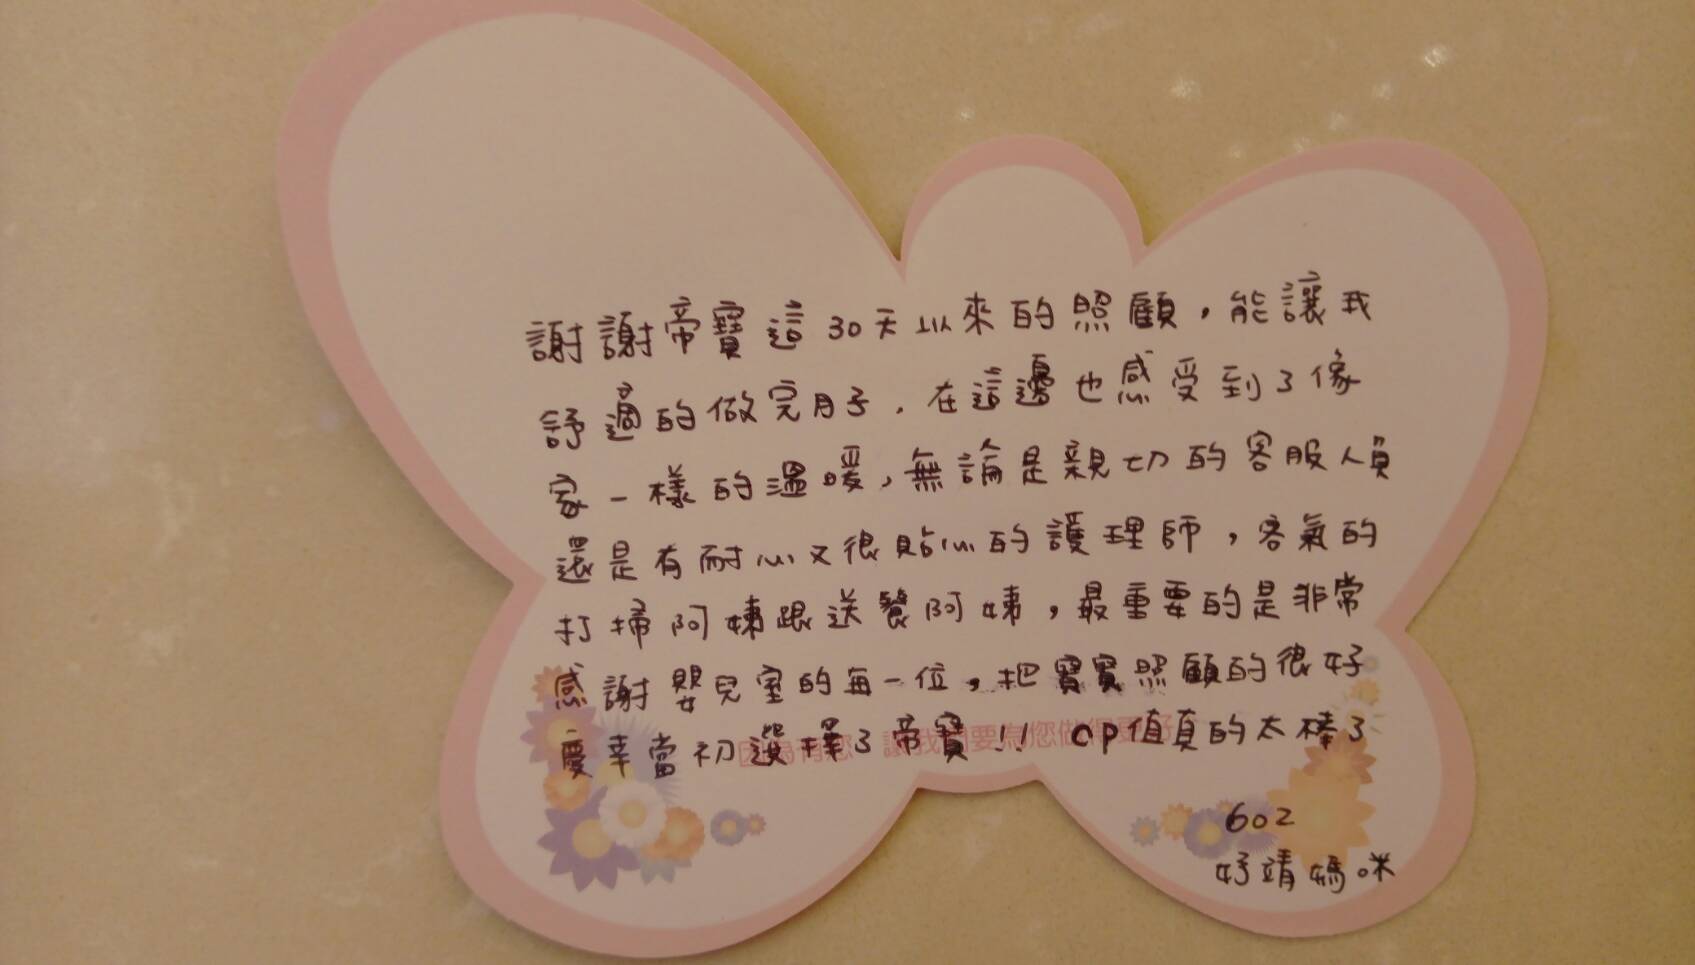 謝謝帝寶這30天以來的照顧，能讓我
舒適的做完月子，在這邊也感受到了像
家一樣的溫暖，無論是親切的客服人員
還是有耐心又很貼心的護理師，客氣的
打掃阿姨跟送餐阿姨，最重要的是非常
感謝嬰兒室的每一位，把寶寶照顧的很好
慶幸當初選擇了帝寶!! cp值真的太棒了
602
妤靖媽咪